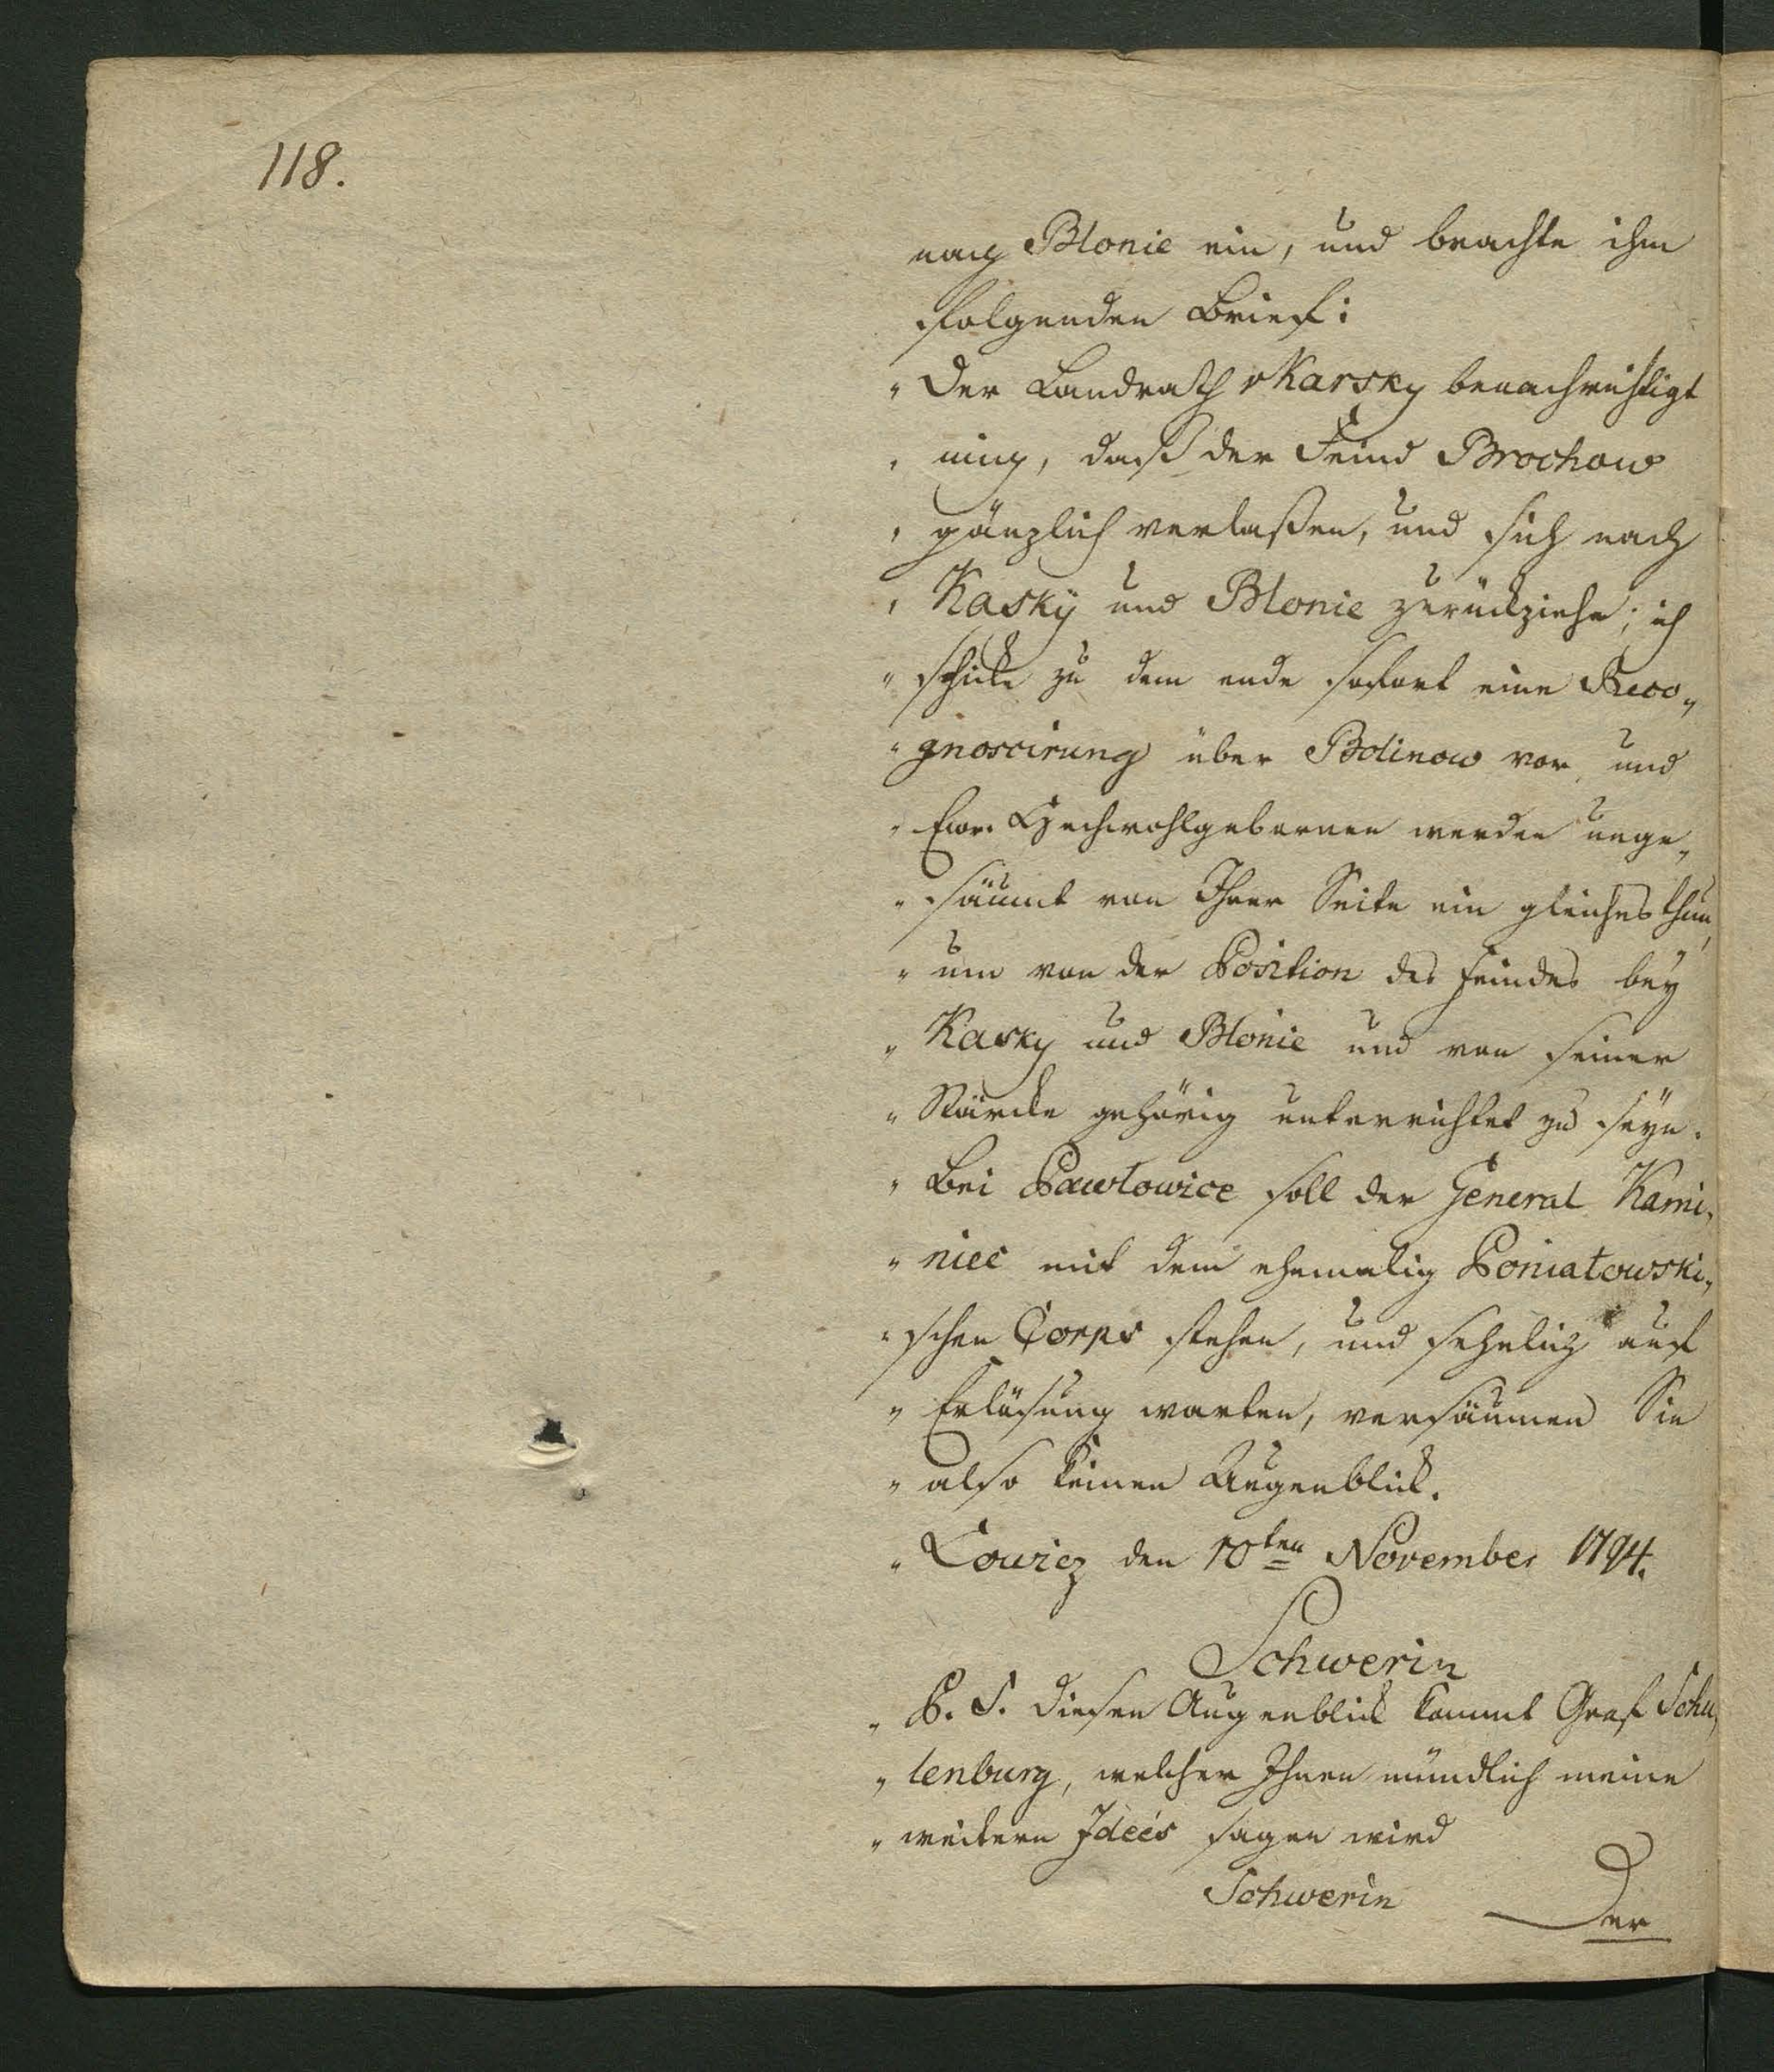 118.
nach Blonie ein, und brachte ihm
folgenden Brief:
„ Der Landrath v Karsky benachrichtigt
„ mich, daß der Feind Brochow
„ gänzlich verlaßen, und sich nach
„ Kasky und Blonie zurückziehe; ich
„ schicke zu dem ende sofort eine Reco„
„ gnoscirung über Bolinow vor, und
„ Ewr. Hochwohlgebornen werden unge„
„ säumt von Ihrer Seite ein gleiches thun,
„ um von der Position des Feindes bey
„ Kasky und Blonie und von seiner
„ Stärcke gehörig unterrichtet zu seyn.
„ Bei Pawlowice soll der General Kami„
„ niec mit dem ehemalig Poniatowski„
„ schen Corps stehen, und sehnlich auf
„ Erlösung warten, versäumen Sie
„ also keinen Augenblick.
„ Lowicz den 10ten November 1794.
Schwerin
„ P. S. Diesen Augenblick kommt Graf Schu„
„ lenburg, welcher Ihnen mündlich meine
„ weitern Ideés sagen wird
Schwerin
Der